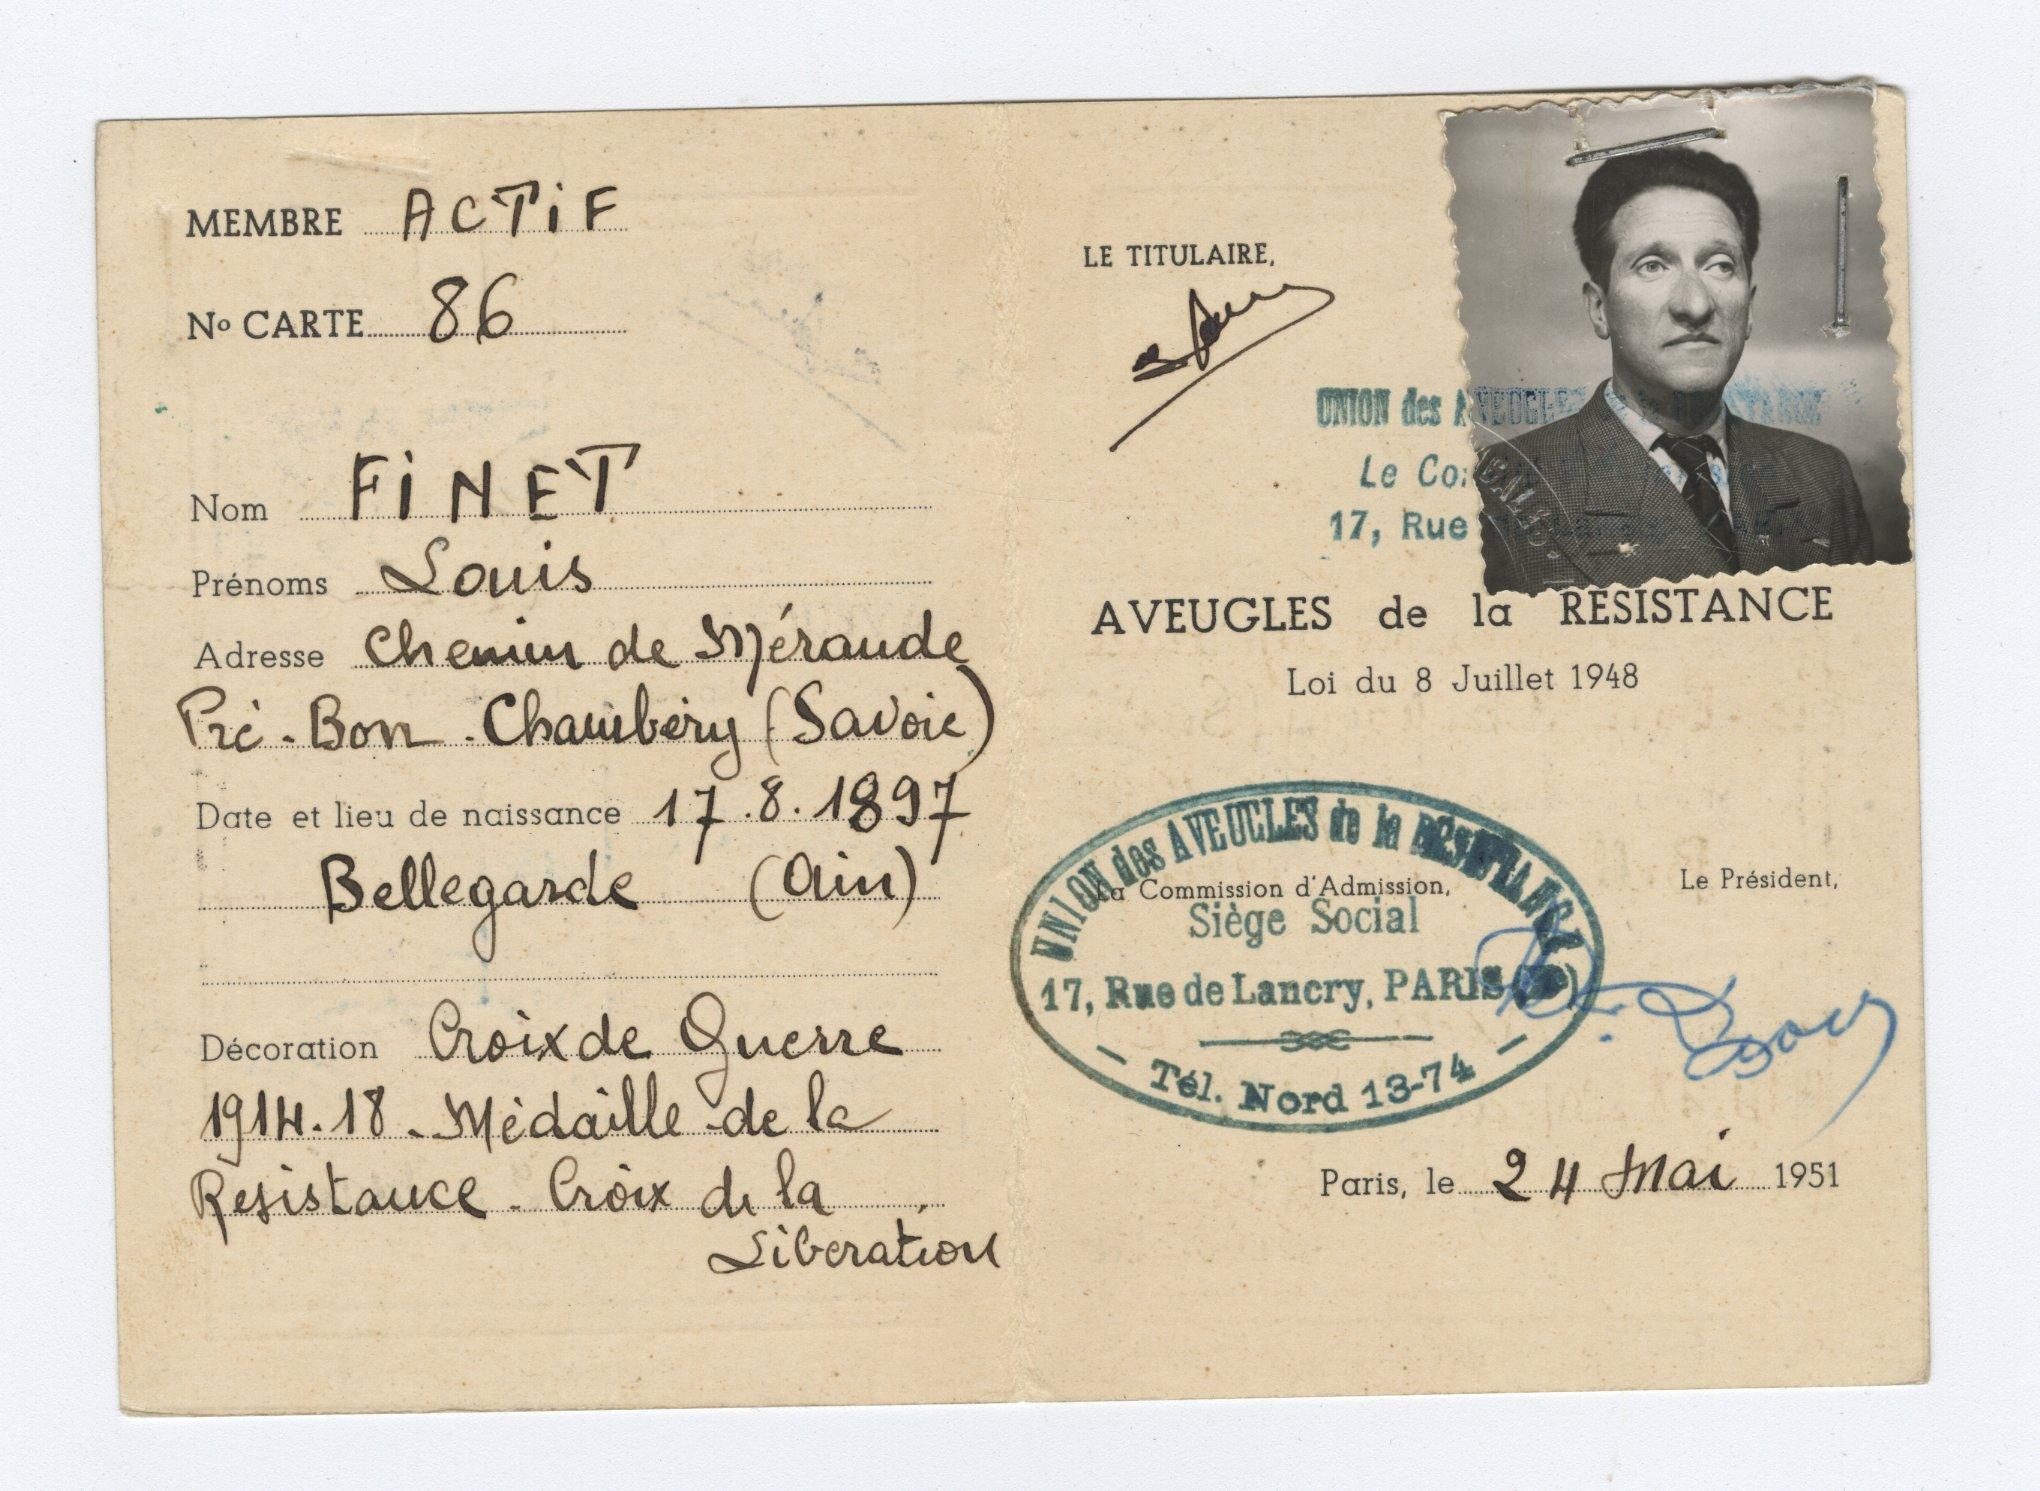 MEMBRE ACTIF
No CARTE 86
Nom FINET
Prénoms Louis
Adresse Chemin de Méraude
Pré-Bon-Chambéry (Savoie)
Date et lieu de naissance 17.8.1897
Bellegarde (Ain)
Décoration Croix de Guerre
1914.18 - Médaille de la
Resistance - Croix de la
Liberation
LE TITULAIRE,
UNION des AVEUGLES de la RESISTANCE
Le
17, Rue
AVEUGLES de la RESISTANCE
Loi du 8 Juillet 1948
UNION des AVEUGLES de la RÉSISTANCE
La Commission d'Admission,
Le Président,
Siège Social
17, Rue de Lancry, PARIS
- Tél. Nord 13-74 -
Paris, le 24 Mai 1951